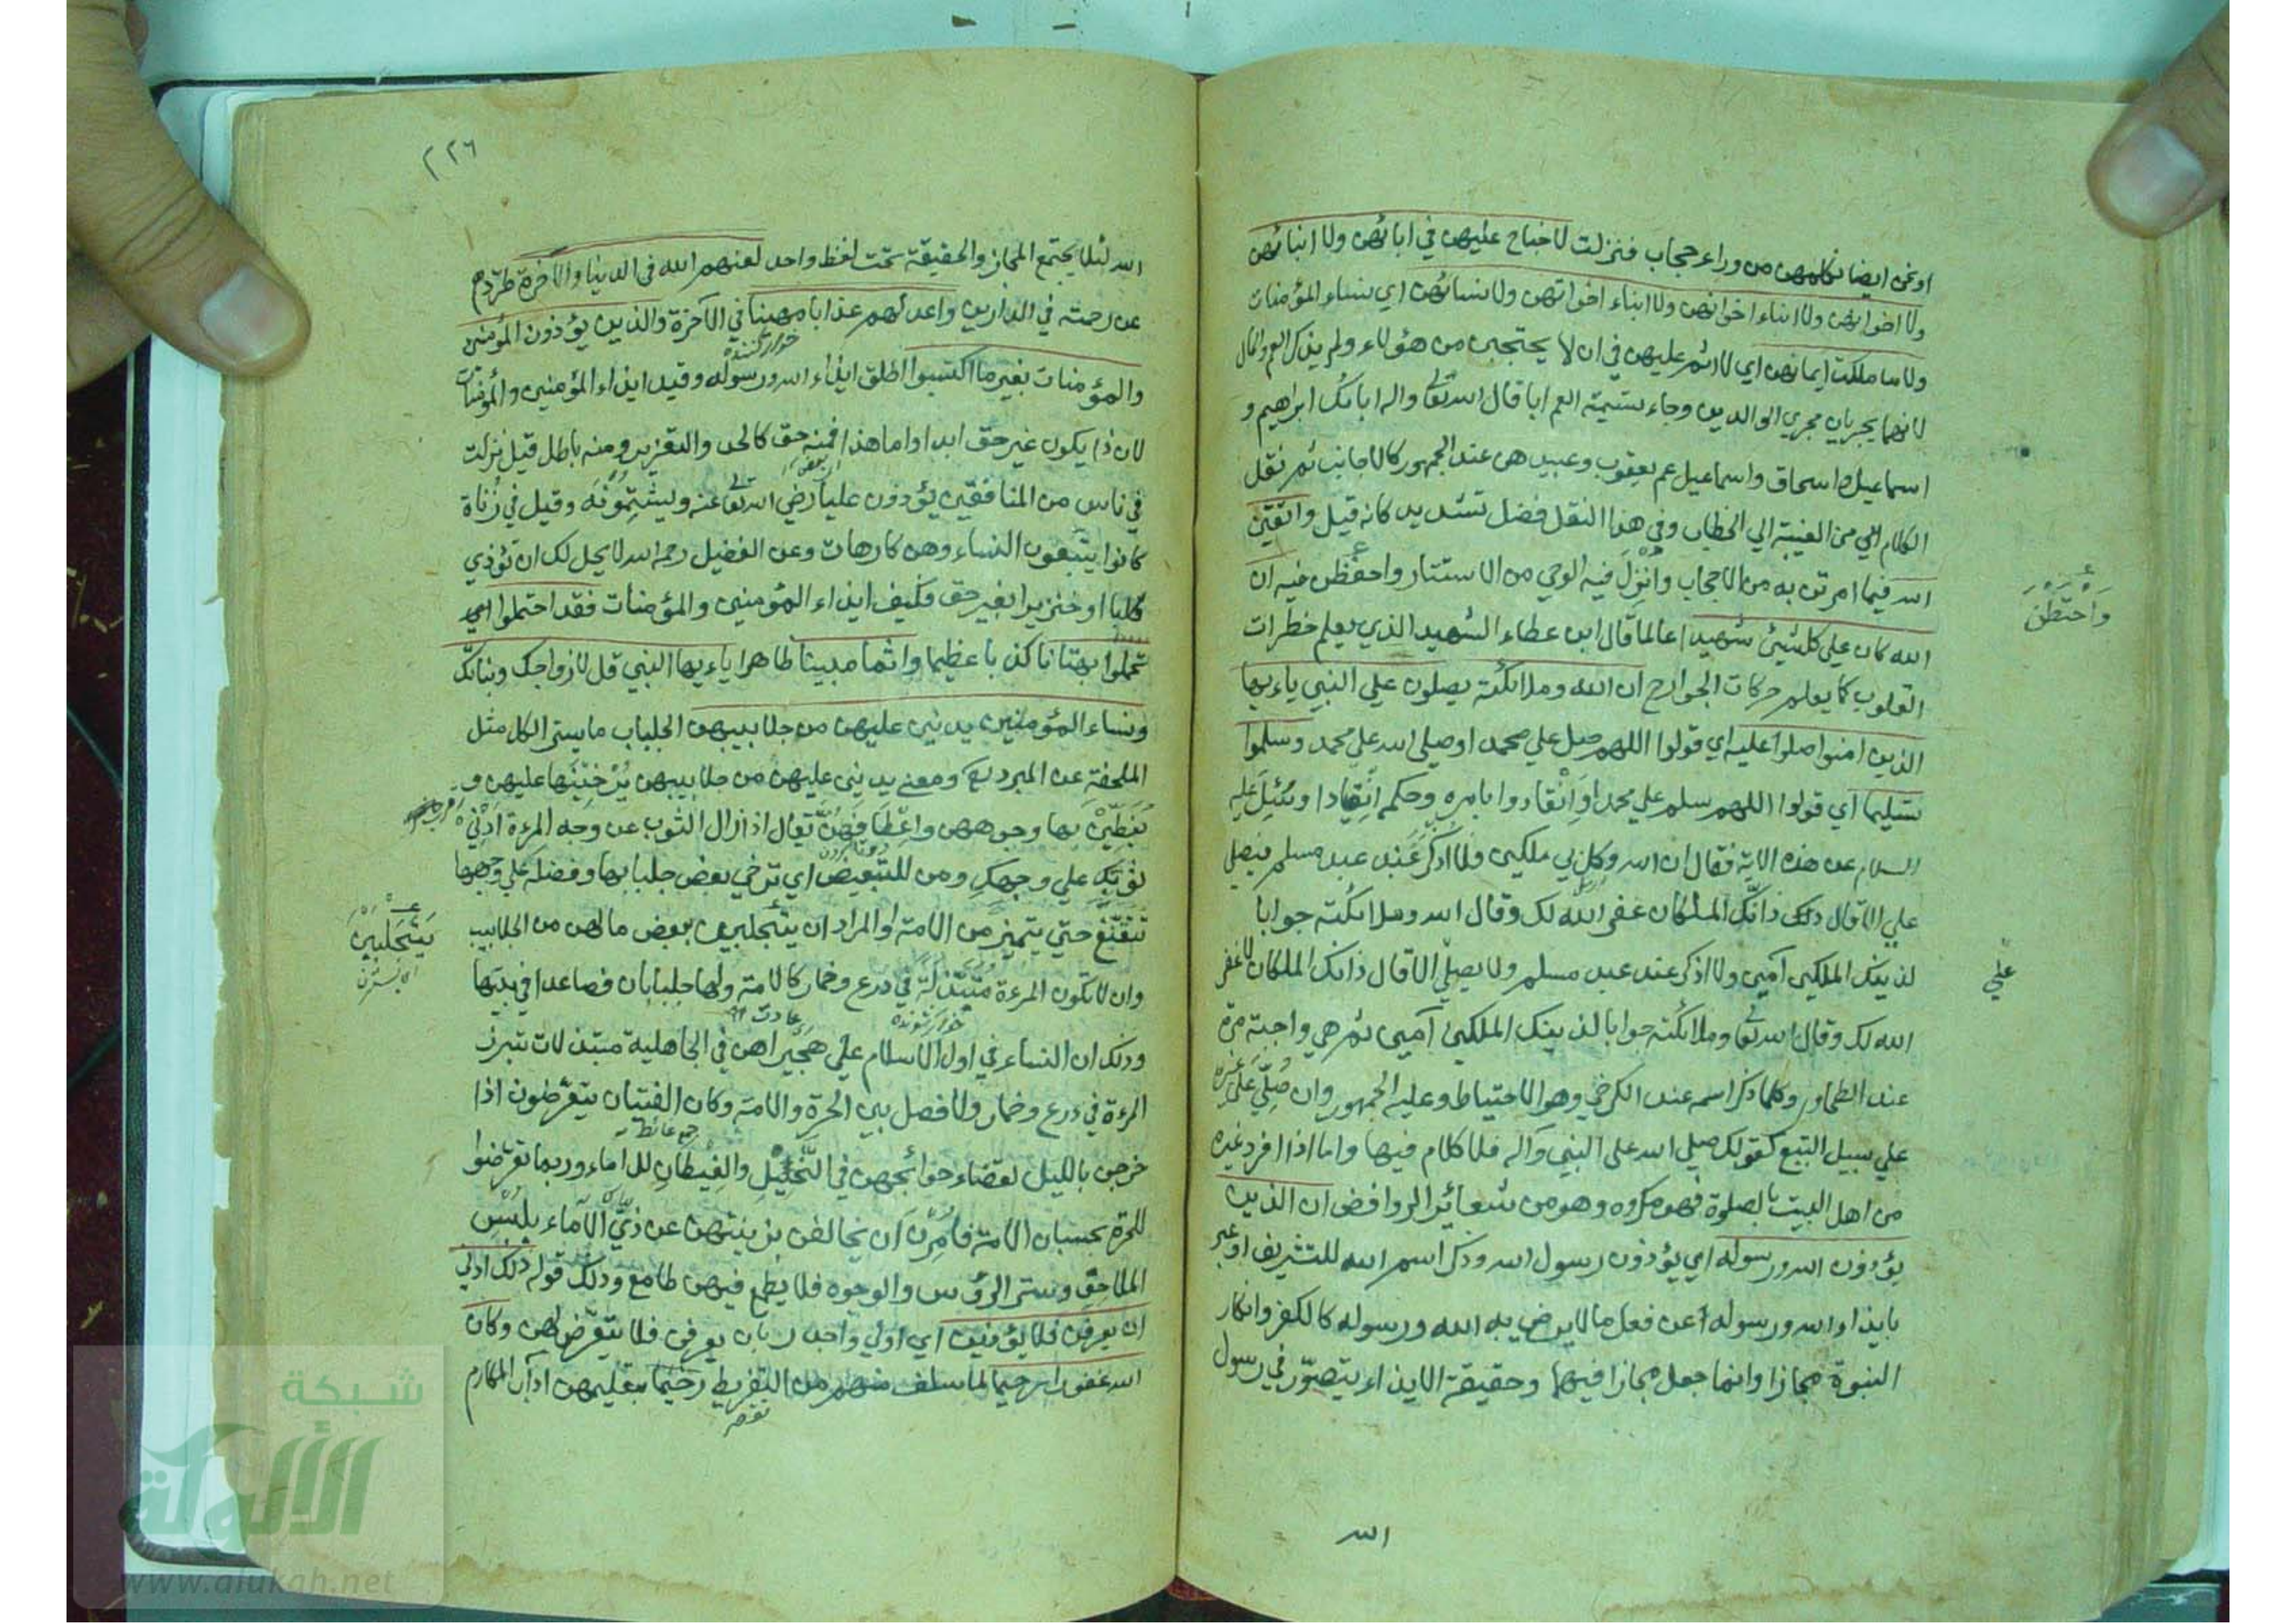 او نحن ايضا نكلمهن من وراء حجاب فنزلت لا جناح عليهن في ابائهن ولا ابنائهن
ولا اخوانهن ولا ابناء اخوانهن ولا ابناء اخواتهن ولا نسائهن اي نساء المؤمنات
ولا ما ملكت ايمانهن اي لا اثم عليهن في ان لا يحتجبن من هؤلاء ولم يذكر العم والخال
لانهما يجريان مجري الوالدين وجاء بتسمية العم ابا قال الله تعالى واله ابائك ابراهيم و
اسماعيل واسحاق واسماعيل عم يعقوب وعبيدهن عند الجمهور كالاجانب ثم نقل
الكلام من الغيبة الي الخطاب وفي هذا النقل فضل تشديد كانه قيل واتقين
الله فيما امرتن به من الاحجاب وانزل فيه الوحي من الاستتار واحفظن فيه ان
واحتطن
الله كان علي كل شيئ شهيدا عالما قال ابن عطاء الشهيد الذي يعلم خطرات
القلوب كما يعلم حركات الجوارح ان الله وملائكته يصلون علي النبي ياءيها
الذين امنوا صلوا عليه اي قولوا اللهم صل علي محمد او صلى الله علي محمد وسلموا
تسليما اي قولوا اللهم سلم علي محمد او انقادوا بامره وحكمه انقيادا وسئل عليه
السلام عن هذه الاية فقال ان الله وكل بي ملكين فلا اذكر عند عبد مسلم فيصلي
علي الا قال ذلك ذانك الملكان غفر الله لك وقال الله وملائكته جوابا
لذينك الملكين آمين ولا اذكر عند عبد مسلم ولا يصلي الا قال ذانك الملكان لا غفر
علي
الله لك وقال الله تعالى وملائكته جوابا لذينك الملكين آمين ثم هي واجبة مرة
عند الطحاوي وكلما ذكر اسمه عند الكرخي وهو الاحتياط وعليه الجمهور وان صلي علي غيره
علي سبيل التبع كقولك صلي الله على النبي وآله فلا كلام فيها واما اذا افرد غيره
من اهل البيت بالصلوة فهو مكروه وهو من شعائر الروافض ان الذين
يؤذون الله ورسوله اي يؤذون رسول الله وذكر اسم الله للتشريف او عبر
بايذاء الله ورسوله عن فعل ما لا يرضي به الله ورسوله كالكفر وانكار
النبوة مجازا وانما جعل مجازا فيهما وحقيقة الايذاء يتصور في رسول
الله
٢٢٦
الله لئلا يجتمع المجاز والحقيقة تحت لفظ واحد لعنهم الله في الدنيا والآخرة طردهم
عن رحمته في الدارين واعد لهم عذابا مهينا في الآخرة والذين يؤذون المؤمنين
والمؤمنات بغير ما اكتسبوا اطلق ايذاء الله ورسوله وقيد ايذاء المؤمنين والمؤمنات
لان ذا يكون غير حق ابدا واما هذا فمنه حق كالحد والتعزير ومنه باطل قيل نزلت
في ناس من المنافقين يؤذون عليا رضي الله تعالى عنه ويشتمونه وقيل في زناة
كانوا يتبعون النساء وهن كارهات وعن الفضيل رحمه الله لا يحل لك ان تؤذي
كلبا او خنزيرا بغير حق فكيف ايذاء المؤمنين والمؤمنات فقد احتملوا اي
تحملوا بهتانا كذبا عظيما واثما مبينا ظاهرا ياءيها النبي قل لازواجك وبناتك
ونساء المؤمنين يدنين عليهن من جلابيبهن الجلباب ما يستر الكل مثل
الملحفة عن المبرد ومعنى يدنين عليهن من جلابيبهن يرخينها عليهن و
يغطين بها وجوههن واعطافهن تقول اذا زال الثوب عن وجه المرءة ادني
ثوبك علي وجهك ومن للتبعيض اي ترخي بعض جلبابها وفضله علي وجهها
تتقنع حتي يتميز من الامة او المراد ان يتجلببن ببعض ما لهن من الجلابيب
يتجلببن
وان لا تكون المرءة متبذلة في درع وخمار كالامة ولها جلبابان فصاعدا في بيتها
وذلك ان النساء في اول الاسلام علي هجيراهن في الجاهلية متبذلات تبرز
المرءة في درع وخمار ولا فصل بين الحرة والامة وكان الفتيان يتعرضون اذا
خرجن بالليل لقضاء حوائجهن في النخيل والغيطان للاماء وربما تعرضوا
للحرة بحسبان الامة فامرن ان يخالفن بزينتهن عن زي الآماء بلبس
الملاحف وستر الرؤس والوجوه فلا يطمع فيهن طامع وذلك قوله ذلك ادني
ان يعرفن فلا يؤذين اي اولي واجدر بان يعرفن فلا يتعرض لهن وكان
الله غفورا رحيما لما سلف منهن من التفريط رحيما بتعليمهن اداب المكارم
شبكة
الألوكة
www.alukah.net